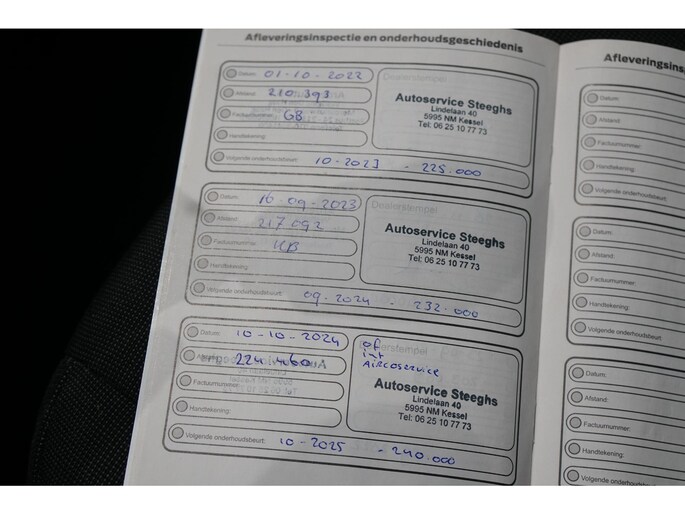 Afleveringsinspectie en onderhoudsgeschiedenis
Datum: 01-10-2022
Afstand: 210.393
Factuurnummer: GB
Handtekening:
Volgende onderhoudsbeurt: 10-2023 - 225.000
Dealerstempel
Autoservice Steeghs
Lindelaan 40
5995 NM Kessel
Tel: 06 25 10 77 73
Datum: 16-09-2023
Afstand: 217092
Factuurnummer:
Handtekening:
Volgende onderhoudsbeurt: 09-2024 - 232.000
Dealerstempel
Autoservice Steeghs
Lindelaan 40
5995 NM Kessel
Tel: 06 25 10 77 73
Datum: 10-10-2024
Afstand: 224.460
Factuurnummer:
Handtekening:
Volgende onderhoudsbeurt: 10-2025 - 240.000
Dealerstempel
of
int
AIRCOSERVICE
Autoservice Steeghs
Lindelaan 40
5995 NM Kessel
Tel: 06 25 10 77 73
Afleveringsinsp
Datum:
Afstand:
Factuurnummer:
Handtekening:
Volgende onderhoudsbeurt:
Datum:
Afstand:
Factuurnummer:
Handtekening:
Volgende onderhoudsbeurt:
Datum:
Afstand:
Factuurnummer:
Handtekening:
Volgende onderhoudsbeurt: